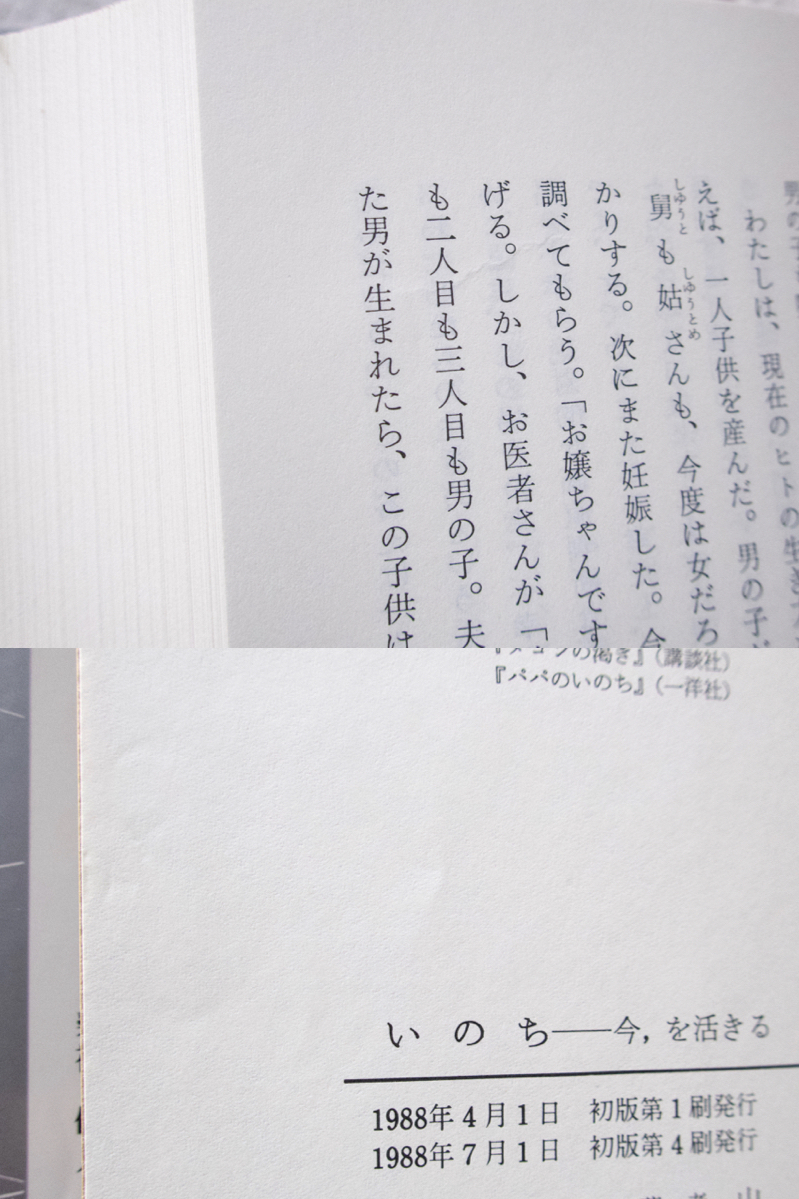 わたしは、現在のヒトの生き
えば、一人子供を産んだ。男の子
舅も姑さんも、今度は女だろ
しゅうと
しゅうとめ
かりする。次にまた妊娠した。今
調べてもらう。「お嬢ちゃんです
げる。しかし、お医者さんが「
も二人目も三人目も男の子。夫
た男が生まれたら、この子供は
の渇き』（講談社）
『パパのいのち』（一洋社）
いのち――今，を活きる
1988年4月1日　初版第1刷発行
1988年7月1日　初版第4刷発行